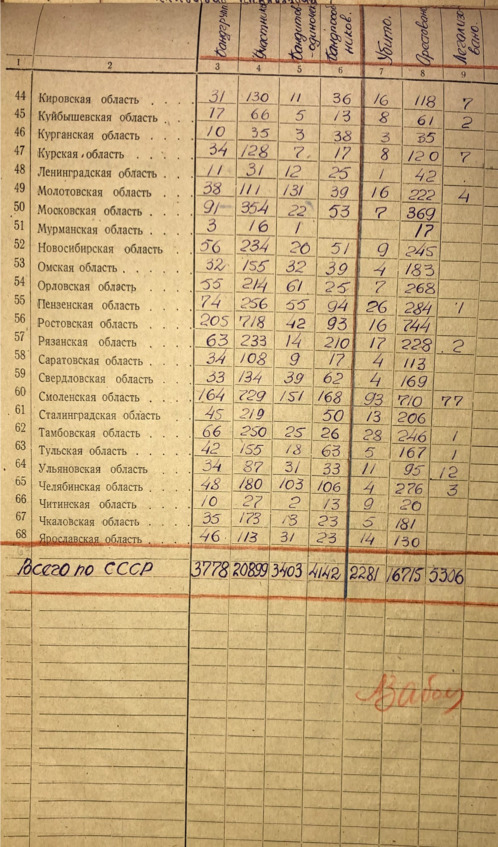 Бандгрупп Участников Бандитов-одиночек Бандпособников. Убито. Арестовано Легализовано.
1 2 3 4 5 6 7 8 9
44 Кировская область . . . 31 130 11 36 16 118 7
45 Куйбышевская область . 17 66 5 13 8 61 2
46 Курганская область . . . 10 35 3 38 3 35
47 Курская область . . . . 34 128 7 17 8 120 7
48 Ленинградская область . . 11 31 12 25 1 42
49 Молотовская область . . . 38 111 131 39 16 222 4
50 Московская область . . . 91 354 22 53 7 369
51 Мурманская область . . . 3 16 1 17
52 Новосибирская область 56 234 20 51 9 245
53 Омская область . . . . 32 155 32 39 4 183
54 Орловская область . . . 55 214 61 25 7 268
55 Пензенская область . . . 74 256 55 94 26 284 1
56 Ростовская область . . . 205 718 42 93 16 744
57 Рязанская область . . . 63 233 14 210 17 228 2
58 Саратовская область . . . 34 108 9 17 4 113
59 Свердловская область . . 33 134 39 62 4 169
60 Смоленская область . . . 164 729 151 168 93 710 77
61 Сталинградская область 45 219 50 13 206
62 Тамбовская область . . . 66 250 25 26 28 246 1
63 Тульская область . . . . 42 155 18 63 5 167 1
64 Ульяновская область . . . 34 87 31 33 11 95 12
65 Челябинская область . . . 48 180 103 106 4 276 3
66 Читинская область . . . 10 27 2 13 9 20
67 Чкаловская область . . . 35 173 13 23 5 181
68 Ярославская область . . . 46 113 31 23 14 130
Всего по СССР 3778 20899 3403 4142 2281 16715 5306